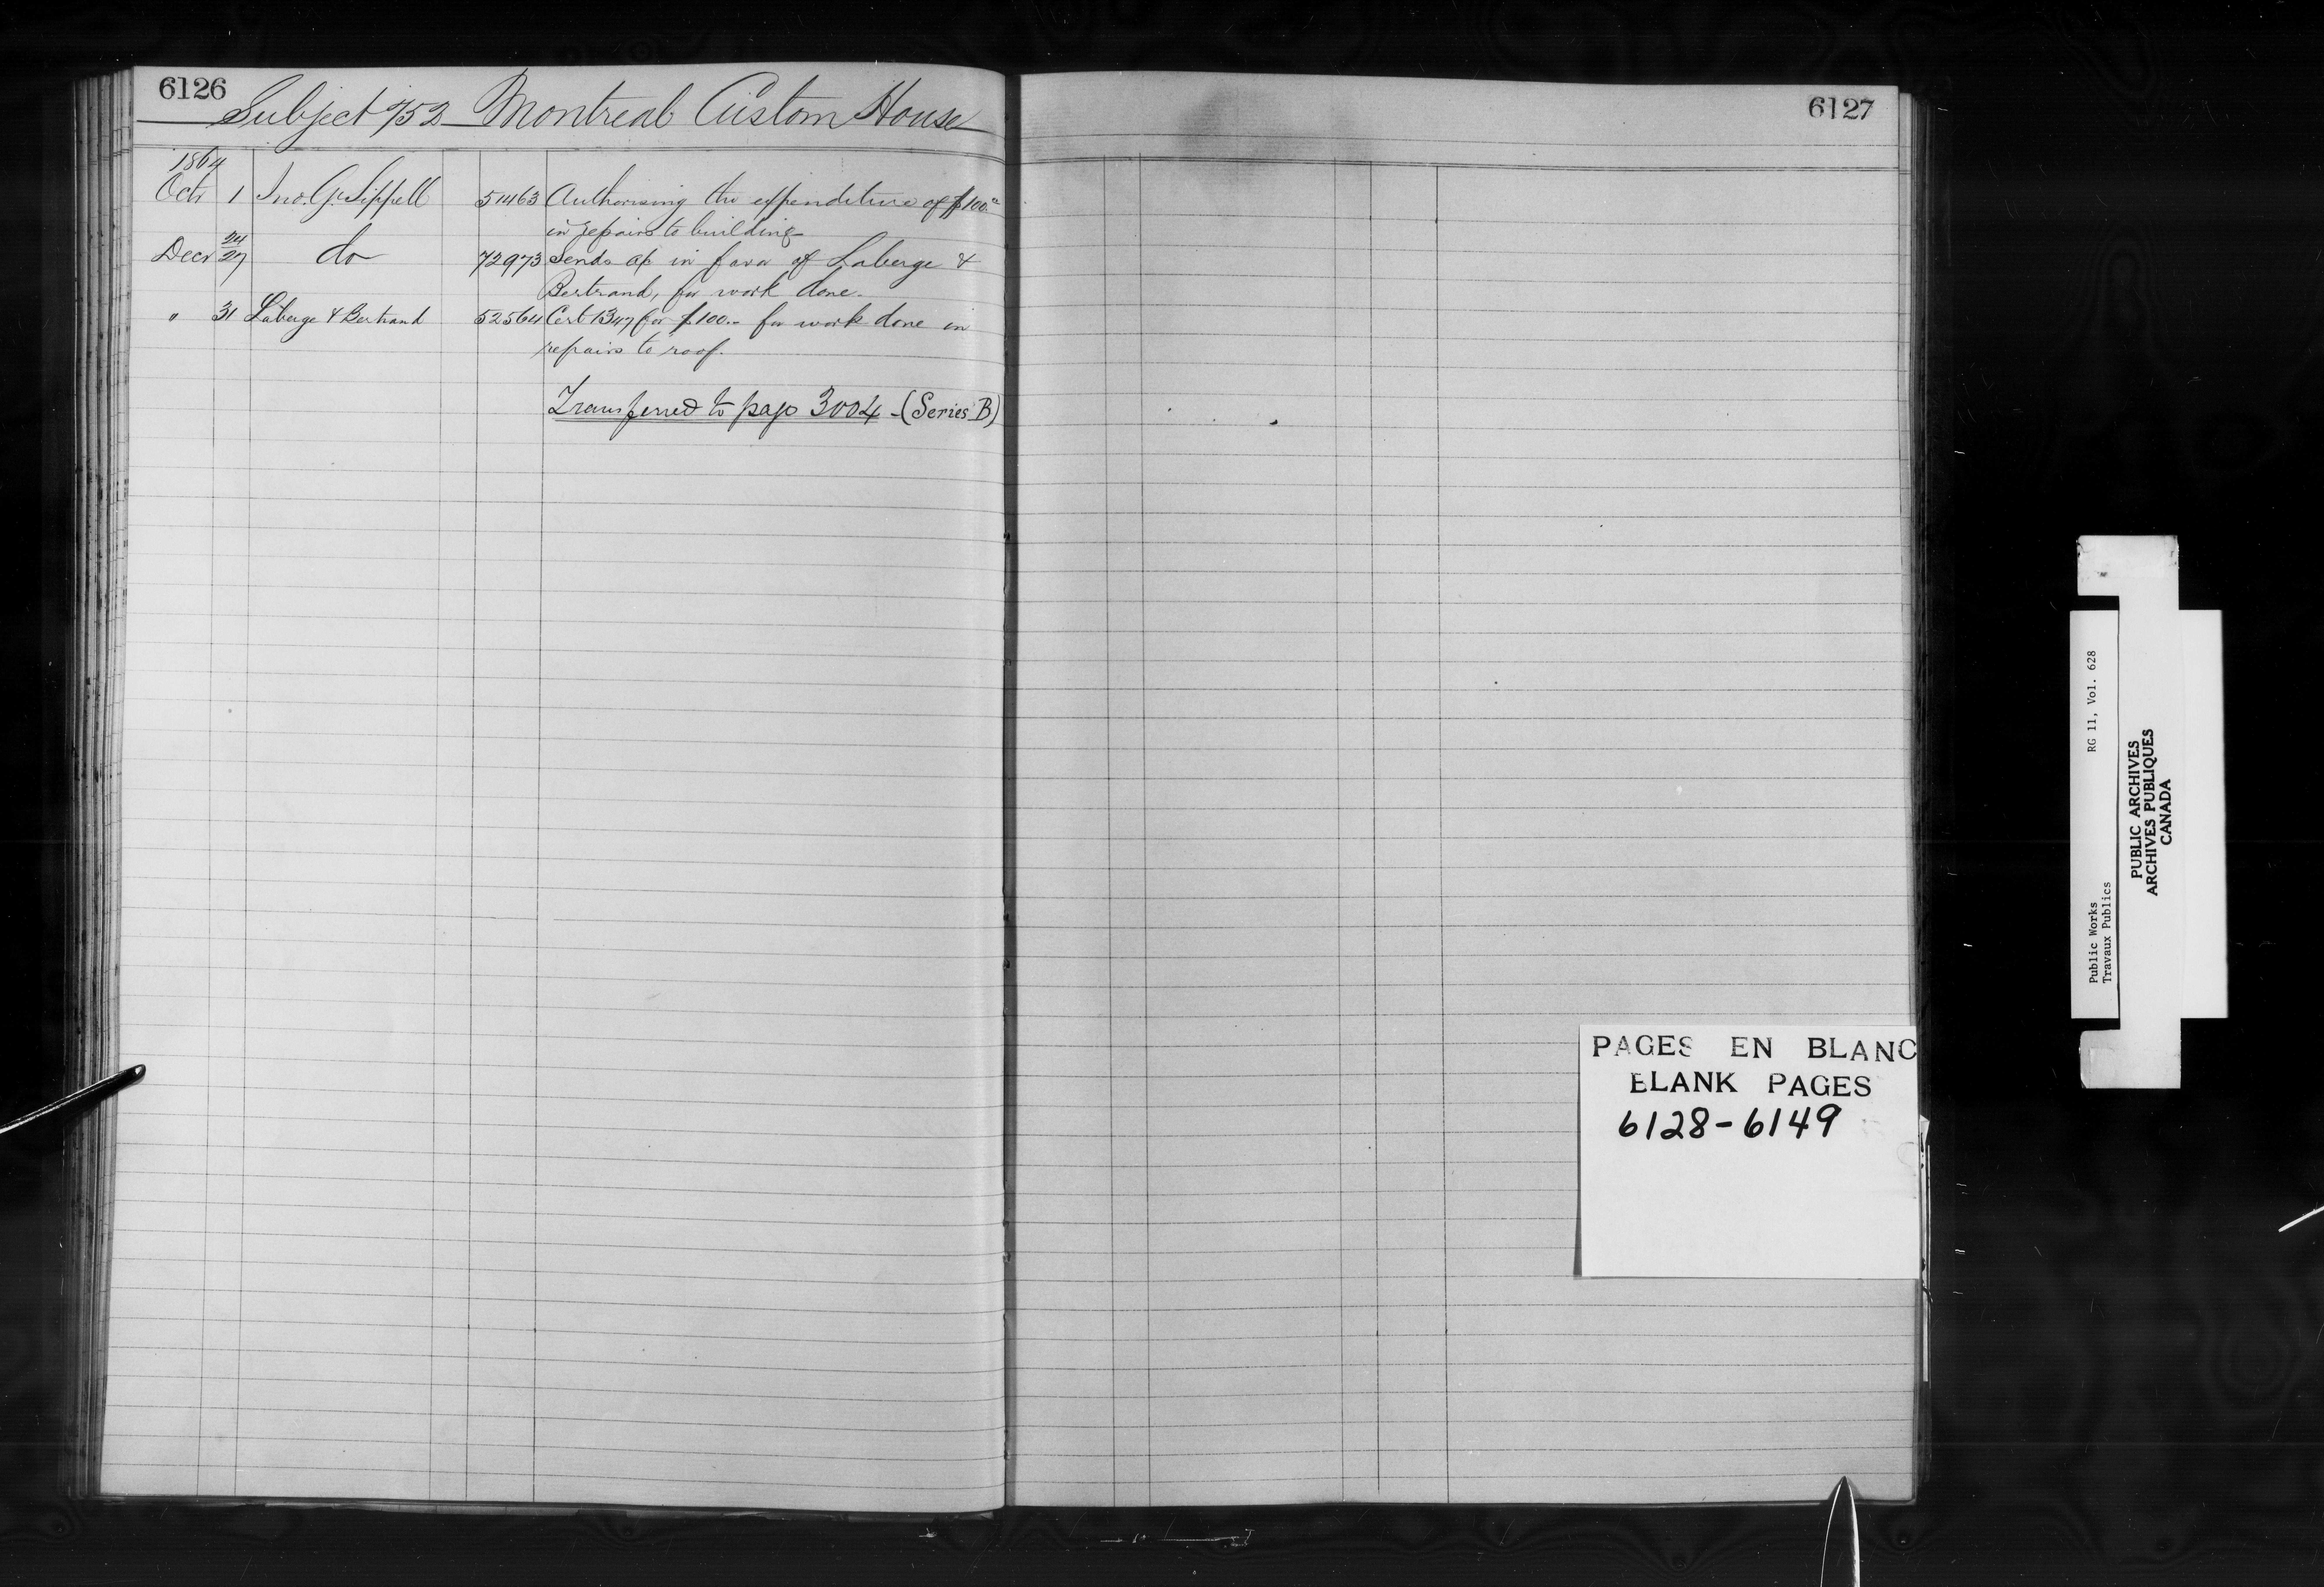 6126
Subject 752 Montreal Custom House
1864
Octr 1 Jno. G. Sippell 51463 Authorising the expenditure of $100.
in repairs to building
Decr 24/27 do 72973 Sends a/c in favor of Laberge &
Bertrand, for work done.
" 31 Laberge & Bertrand 52564 Cert 1347 for $100.- for work done in
repairs to roof.
Transferred to page 3004 - (Series B)
6127
PAGES EN BLANC
BLANK PAGES
6128-6149
Public Works RG 11, Vol. 628
Travaux Publics
PUBLIC ARCHIVES
ARCHIVES PUBLIQUES
CANADA